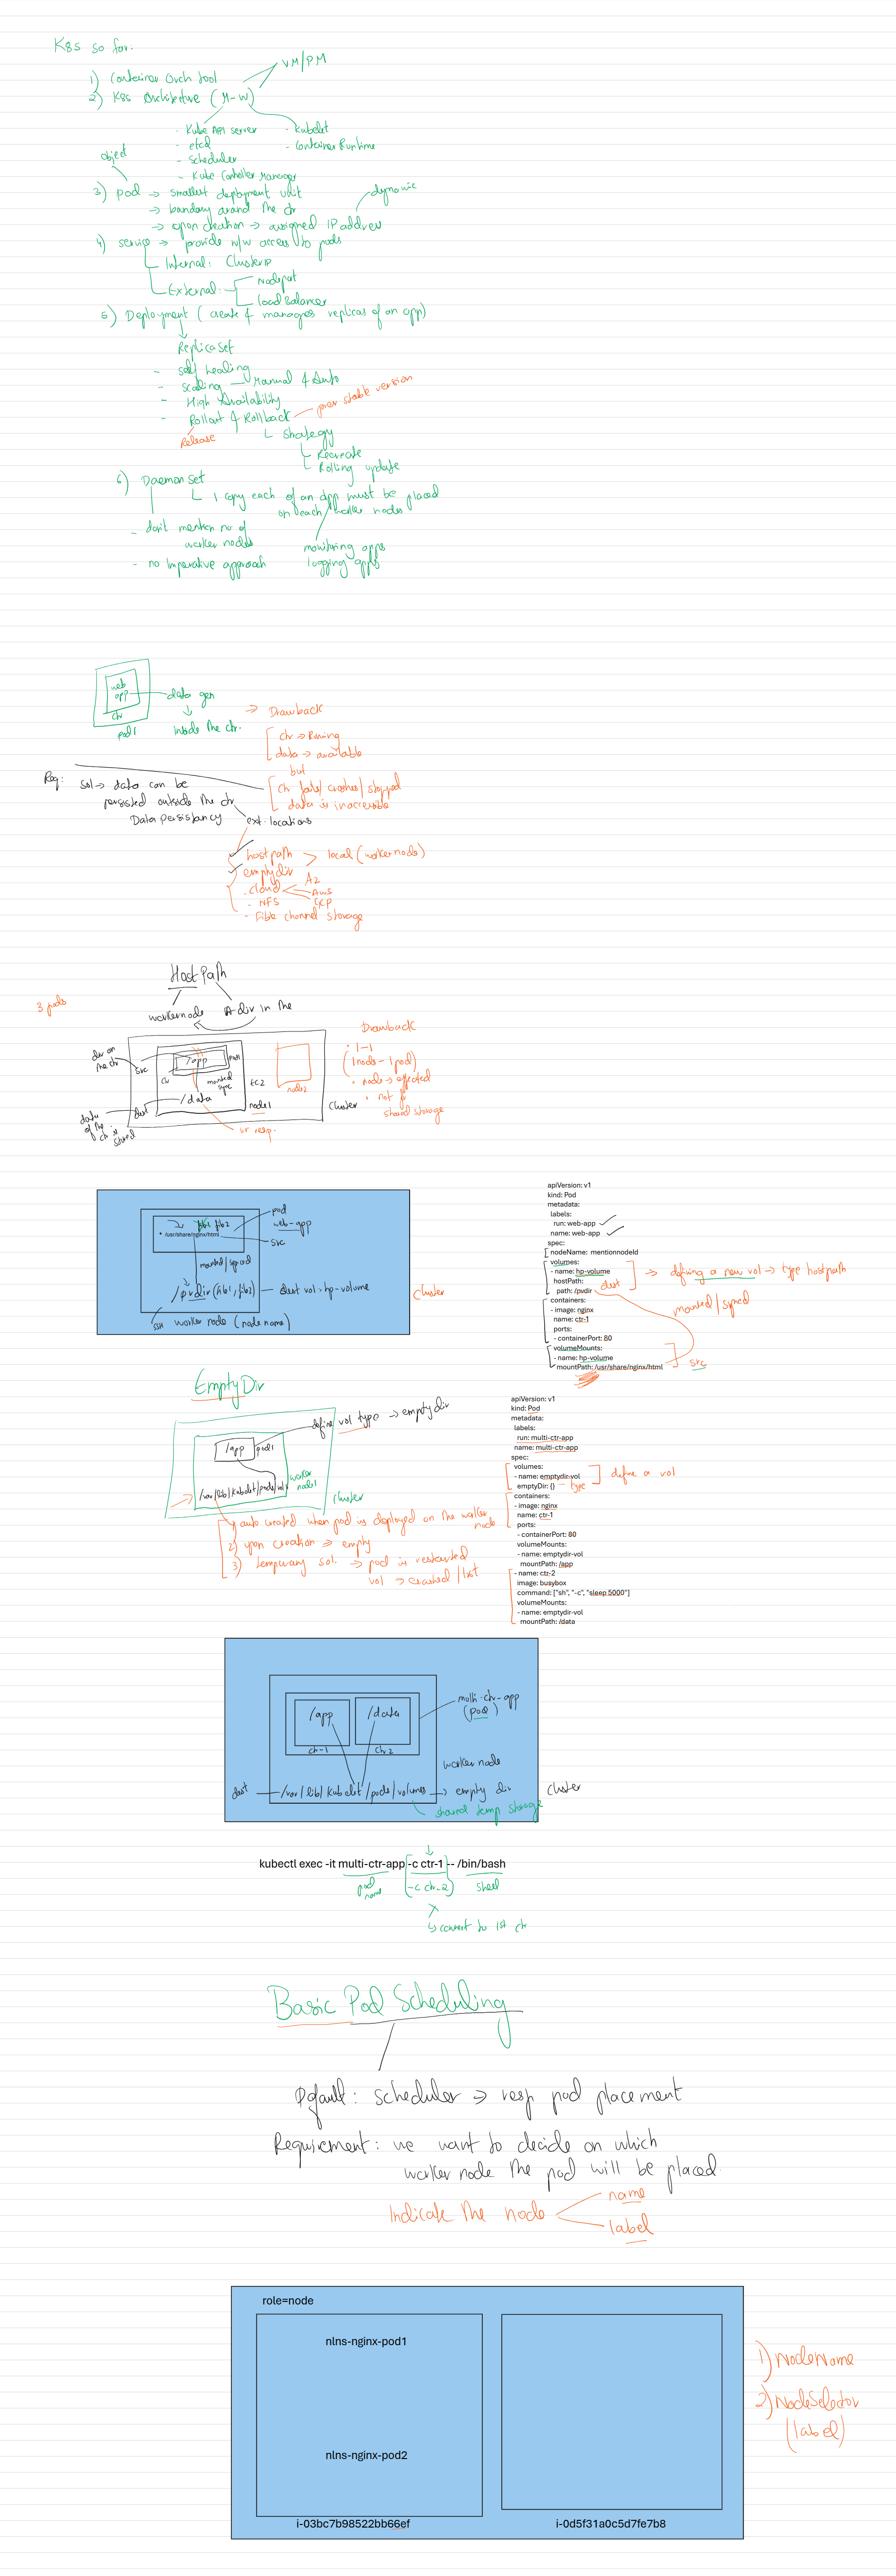 K8s so far:
1) Container Orch tool
VM/PM
2) K8s Architecture (M-W)
- Kube API server
- etcd
- Scheduler
- Kube Controller Manager
- Kubelet
- Container Runtime
object
3) pod → smallest deployment unit
→ boundary around the ctr
→ upon creation → assigned IP address
dynamic
4) service → provide n/w access to pods
Internal: ClusterIP
External:
Nodeport
Load Balancer
5) Deployment ( create & manages replicas of an app)
ReplicaSet
- self healing
- scaling — Manual & Auto
- High Availability
- Rollout & Rollback
prev stable version
Release
Strategy
Recreate
Rolling update
6) Daemon Set
1 copy each of an app must be placed
on each worker nodes
- don't mention no of
worker nodes
- no Imperative approach
monitoring apps
logging apps
web
app
ctr
pod1
data gen
inside the ctr.
→ Drawback
ctr → Running
data → available
but
ctr fails/crashes/stopped
data is inaccessible
Req:
Sol → data can be
persisted outside the ctr
Data persistancy
ext. locations
hostpath
emptydir
> local (workernode)
- cloud
AZ
AWS
GCP
- NFS
- Fible channel storage
HostPath
workernode
A dir in the
3 pods
dir on
the ctr
src
/app
pod1
ctr
mounted
sync
EC2
dest
/data
node1
node2
cluster
data
of the
ctr is
stored
ur resp.
Drawback
• 1-1
(1node - 1pod)
• node → affected
• not a
shared storage
file1 file2
• /usr/share/nginx/html
pod
web-app
src
mounted/synced
/pvdir (file1, file2)
dest vol: hp-volume
SSH worker node (node name)
cluster
apiVersion: v1
kind: Pod
metadata:
labels:
run: web-app
name: web-app
spec:
nodeName: mentionnodeId
volumes:
- name: hp-volume
hostPath:
path: /pvdir
dest
→ defining a new vol → type hostpath
containers:
- image: nginx
name: ctr-1
ports:
- containerPort: 80
volumeMounts:
- name: hp-volume
mountPath: /usr/share/nginx/html
mounted/synced
src
EmptyDir
define vol type → emptydir
/app
pod1
/var/lib/kubelet/pods/vol
worker
node1
cluster
1) auto created when pod is displayed on the worker
node
2) upon creation → empty
3) temporary sol. → pod is restarted
vol → crashed/lost
apiVersion: v1
kind: Pod
metadata:
labels:
run: multi-ctr-app
name: multi-ctr-app
spec:
volumes:
- name: emptydir-vol
emptyDir: {}
type
define a vol
containers:
- image: nginx
name: ctr-1
ports:
- containerPort: 80
volumeMounts:
- name: emptydir-vol
mountPath: /app
- name: ctr-2
image: busybox
command: ["sh", "-c", "sleep 5000"]
volumeMounts:
- name: emptydir-vol
mountPath: /data
/app
/data
ctr-1
ctr2
multi-ctr-app
(pod)
worker node
dest
/var/lib/kubelet/pods/volumes → empty dir
cluster
shared temp storage
kubectl exec -it multi-ctr-app -c ctr-1 -- /bin/bash
pod
name
(-c ctr-2)
shell
X
↳ connect to 1st ctr
Basic Pod Scheduling
Default: scheduler → resp pod placement
Requirement: we want to decide on which
worker node the pod will be placed.
Indicate the node
name
label
role=node
nlns-nginx-pod1
nlns-nginx-pod2
i-03bc7b98522bb66ef
i-0d5f31a0c5d7fe7b8
1) NodeName
2) NodeSelector
(label)